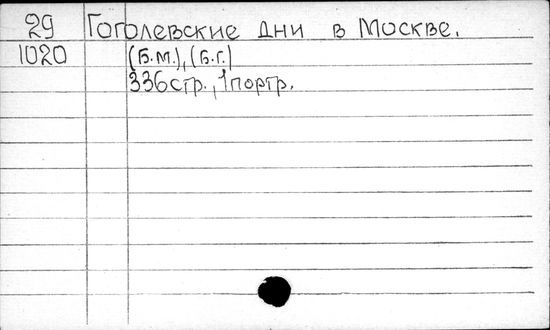 29 Гоголевские дни в Москве.
1020 (Б.м.), (Б.г.)
336стр., 1портр.